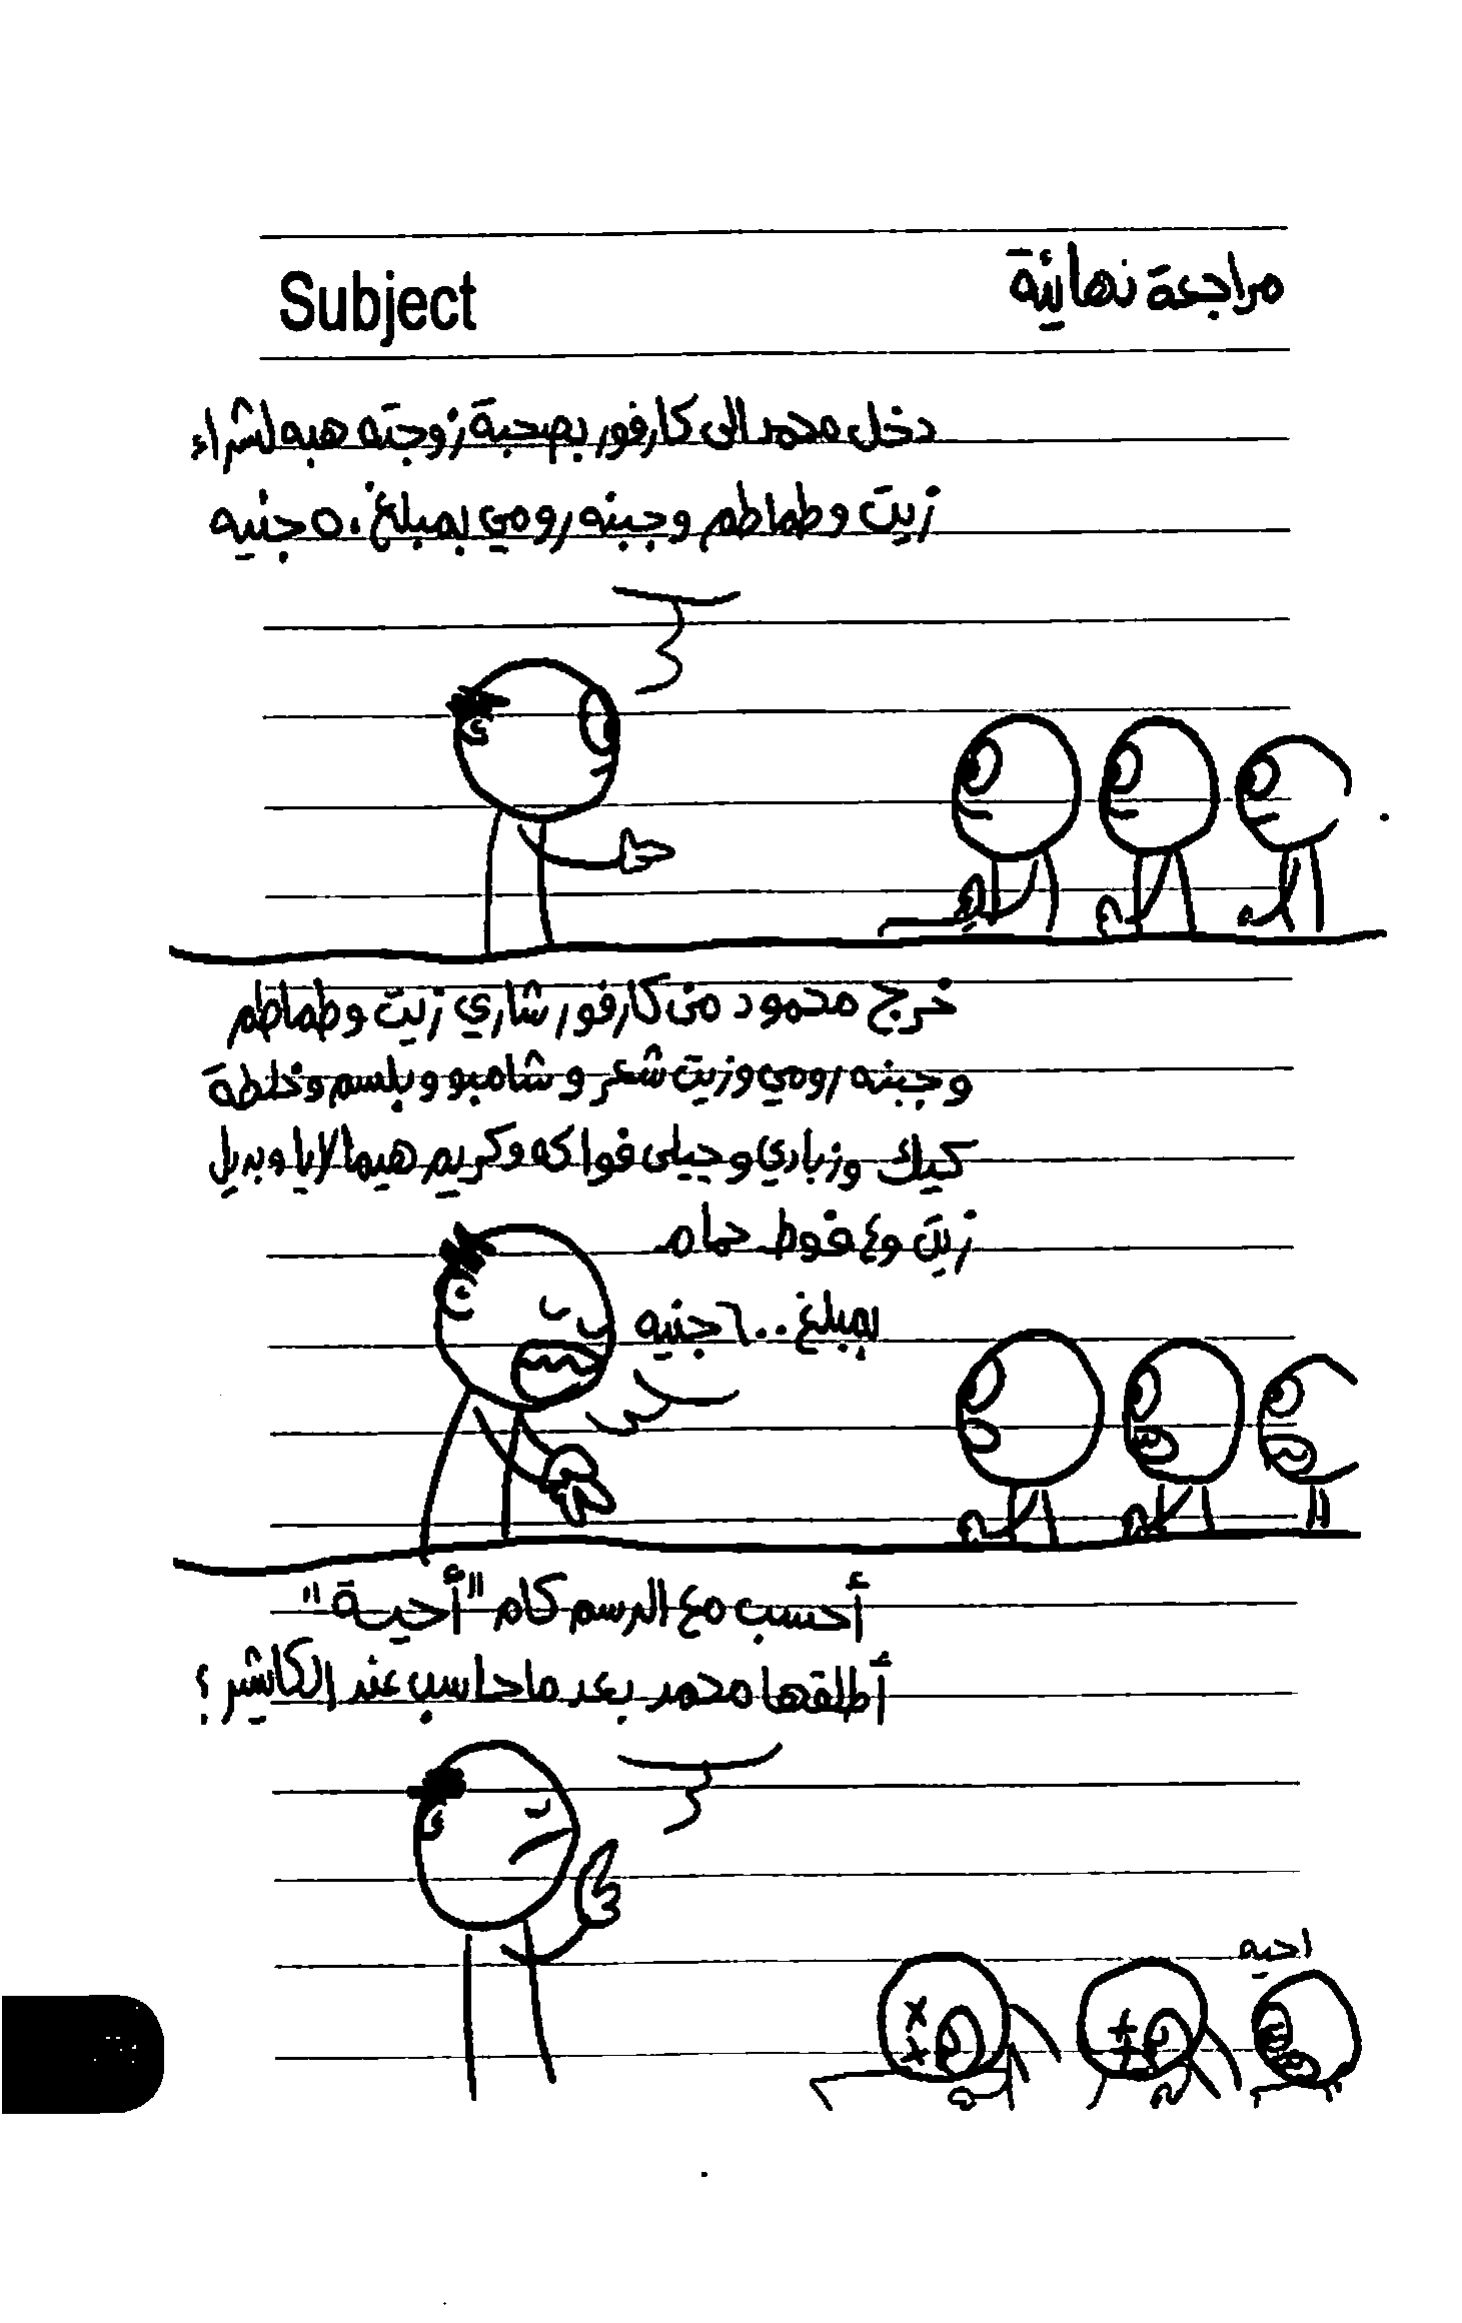 مراجعة نهائية
Subject
دخل محمد الى كارفور بصحبة زوجته هبه لشراء
زيت وطماطم وجبنه رومي بمبلغ ٥٠ جنيه
خرج محمود من كارفور شاري زيت وطماطم
وجبنه رومي وزيت شعر وشامبو وبلسم وخلطة
كيك وزبادي وجيلى فواكه وكريم هيمالايا وبديل
زيت و٤ فوط حمام
بمبلغ ٦٠٠ جنيه
أحسب مع الرسم كام "أحيـة"
أطلقها محمد بعد ماحاسب عند الكاشير؟
احيه